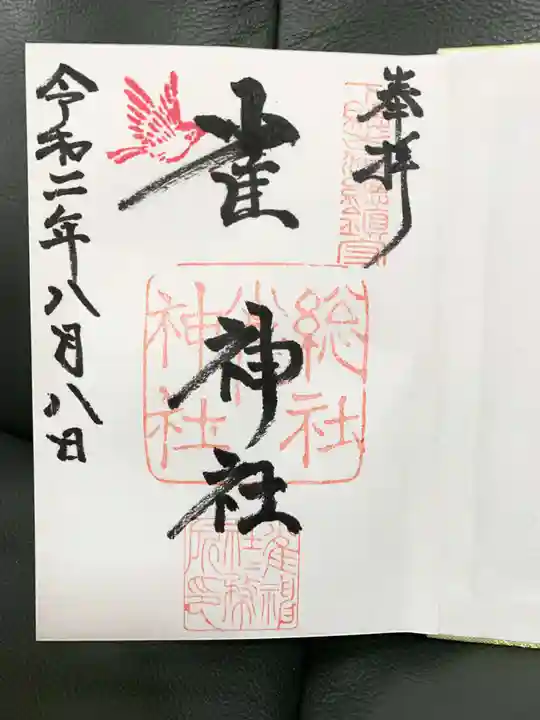 奉拝
雀神社
総社
神社
令和二年八月八日